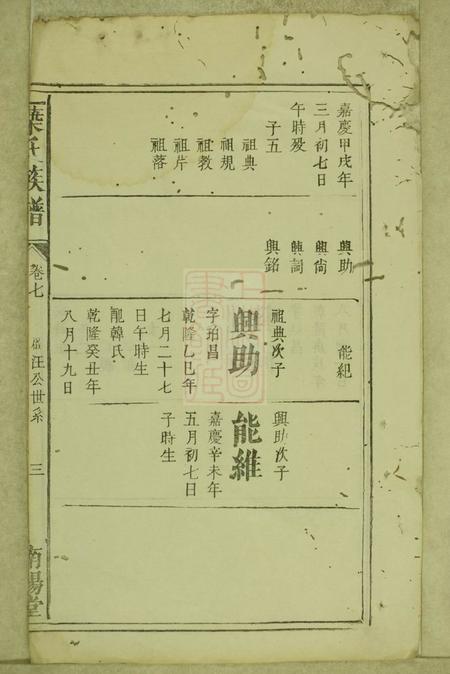 嘉慶甲戌年
三月初七日
午時歿
子五
祖典
祖規
祖教
祖庁
祖落
興助
興尙
興詞
興銘
能紀
祖典次子
興助
字珀昌
乾隆乙巳年
七月二十七
日午時生
配韓氏
乾隆癸丑年
八月十九日
興助次子
能維
嘉慶辛未年
五月初七日
子時生
葉氏族譜
卷七
汪公世系
三
南陽堂